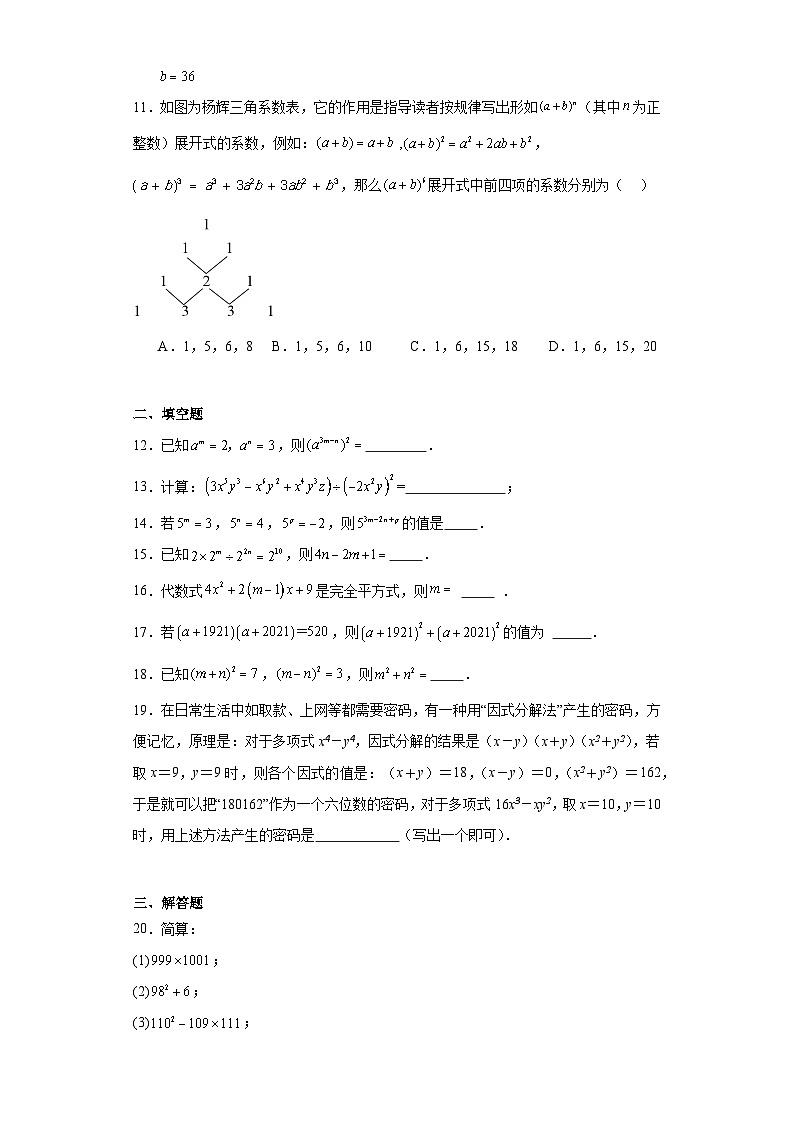 b = 36
11．如图为杨辉三角系数表，它的作用是指导读者按规律写出形如(a+b)ⁿ（其中n为正
整数）展开式的系数，例如：(a+b)=a+b ,(a+b)²=a²+2ab+b²，
(a+b)³ = a³+3a²b+3ab²+b³，那么(a+b)⁶展开式中前四项的系数分别为（　）
1
1 1
1 2 1
1 3 3 1
A．1，5，6，8 B．1，5，6，10 C．1，6，15，18 D．1，6，15，20
二、填空题
12．已知aᵐ=2，aⁿ=3，则(a³ᵐ⁻ⁿ)²=________．
13．计算：(3x⁵y³−x⁶y²+x⁴y³z)÷(−2x²y)²=______________；
14．若5ᵐ=3，5ⁿ=4，5ᵖ=−2，则5³ᵐ⁻²ⁿ⁺ᵖ的值是_____．
15．已知2×2ᵐ÷2²ⁿ=2¹⁰，则4n−2m+1=_____．
16．代数式4x²+2(m−1)x+9是完全平方式，则m= _____ ．
17．若(a+1921)(a+2021)=520，则(a+1921)²+(a+2021)²的值为 ______．
18．已知(m+n)²=7，(m−n)²=3，则m²+n²=_____．
19．在日常生活中如取款、上网等都需要密码，有一种用“因式分解法”产生的密码，方
便记忆，原理是：对于多项式x⁴－y⁴，因式分解的结果是（x－y）（x＋y）（x²＋y²），若
取x＝9，y＝9时，则各个因式的值是：（x＋y）＝18，（x－y）＝0，（x²＋y²）＝162，
于是就可以把“180162”作为一个六位数的密码，对于多项式16x³－xy²，取x＝10，y＝10
时，用上述方法产生的密码是____________（写出一个即可）．
三、解答题
20．简算：
(1)999×1001；
(2)98²+6；
(3)110²−109×111；